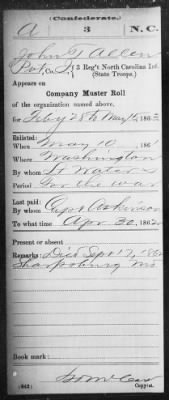 (Confederate.)
A 3 N.C.
John Allen
Pvt Co. I, 3 Reg't North Carolina Inf.
(State Troops.)
Appears on
Company Muster Roll
of the organization named above,
for Feby 28 to May 1, 186
Enlisted:
When May 10, 186
Where Washington
By whom Lt
Period For the war
Last paid:
By whom Capt
To what time Apr 30, 186
Present or absent
Remarks: Died Sept 17, 1862
Sharpsburg Md
Book mark:
(642) Copyist.